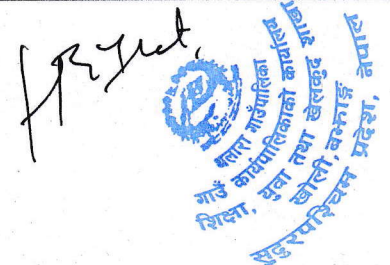 थलारा गाउँपालिका
गाउँ कार्यपालिकाको कार्यालय
शिक्षा, युवा तथा खेलकुद शाखा
खोली, बझाङ
सुदूरपश्चिम प्रदेश, नेपाल